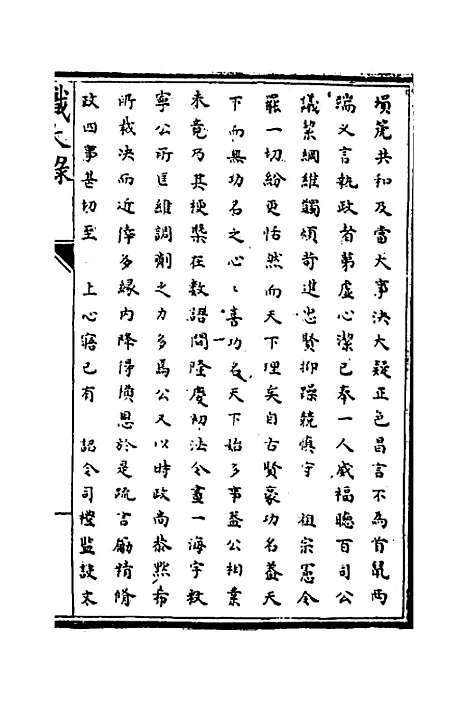 塤箎共和及當大事決大疑正色昌言不為首鼠兩
端又言執政者第虛心潔己奉一人威福聽百司公
議絜綱維蠲煩苛進忠賢抑躁競慎守 祖宗憲令
罷一切紛更恬然而天下理矣自古賢豪功名葢天
下而無功名之心〻喜功名天下始多事葢公相業
未竟乃其梗槩在數語間隆慶初法令畫一海宇敉
寧公所匡維調劑之力多焉公又以時政尚恭黙希
所裁決而近倖多緣内降得横恩於是疏言勵精脩
政四事甚切至 上心寤已有 詔令司禮監諓文
獻大錄